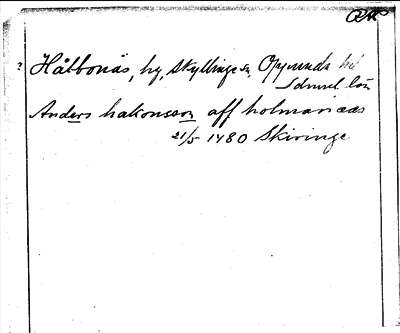 RA
? Håtbonäs, by, Skyllinge sn, Oppunda hd
Södml. län
Anders hakonsson aff holmanæs
21/5 1480 Skiringe